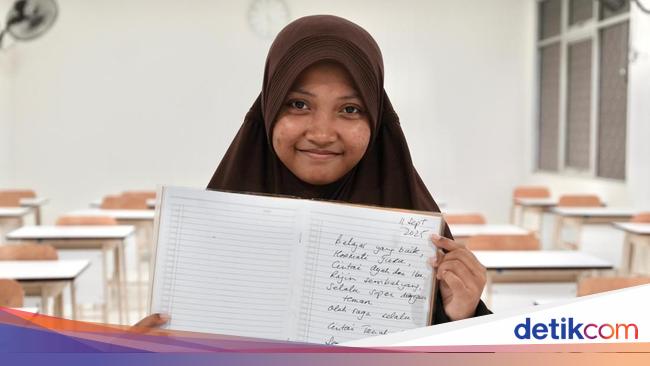 11 Sept
2025
Belajar yang baik,
Hormati Guru,
Cintai Ayah dan Ibu
Rajin sembahyang
Selalu super dengan
teman
Olah raga selalu
Cintai Tanah
detikcom